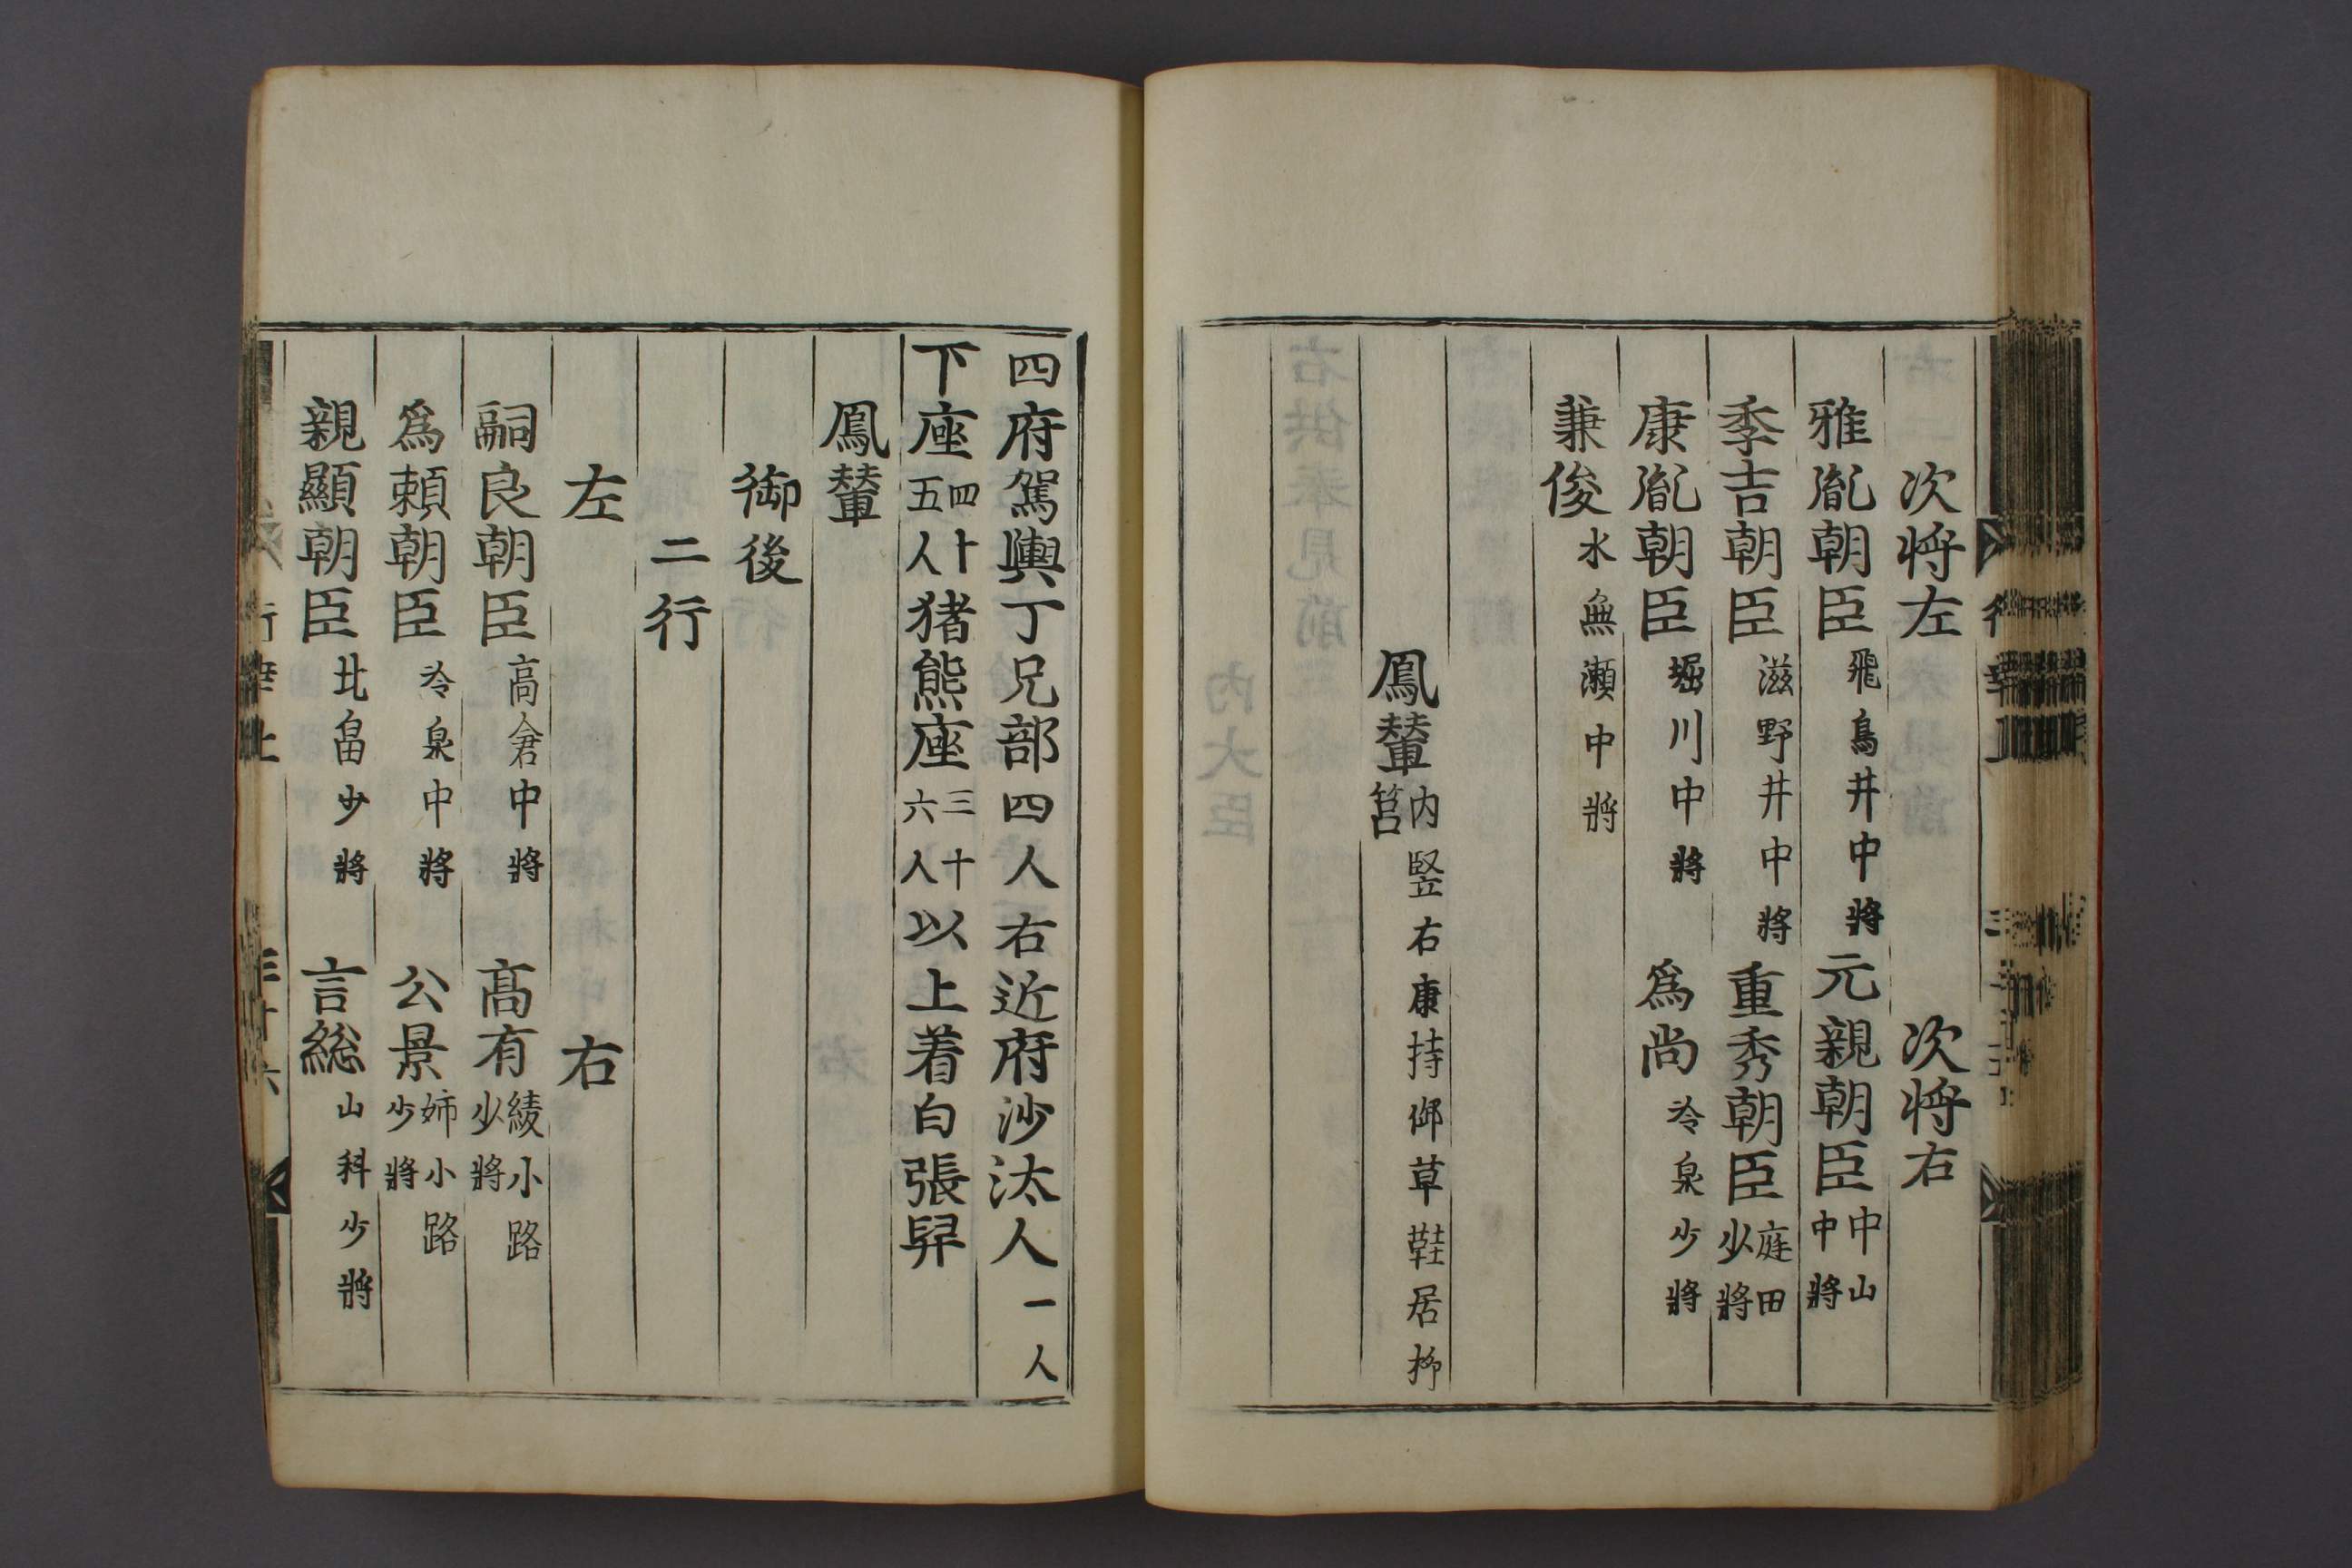 次將左　次將右
雅胤朝臣飛鳥井中將　元親朝臣中山中將
季吉朝臣滋野井中將　重秀朝臣庭田少將
康胤朝臣堀川中將　爲尚冷泉少將
兼俊水無瀬中將
鳳輦内竪右康持御草鞋居栁筥
四府駕輿丁兄部四人右近府沙汰人一人
下座四十五人猪熊座三十六人以上着白張舁
鳳輦
御後
二行
左　右
嗣良朝臣高倉中將　髙有綾小路少將
爲頼朝臣冷泉中將　公景姉小路少將
親顯朝臣北畠少將　言総山科少將
行幸上